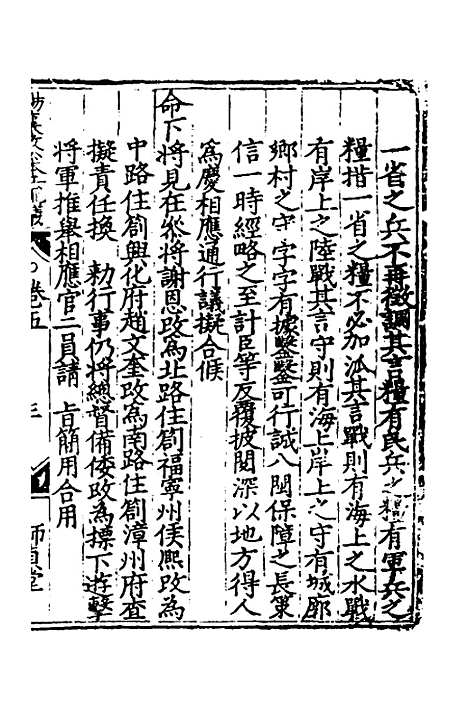 一省之兵不再徵調其言糧有民兵之糧有軍兵之
糧措一省之糧不必加派其言戰則有海上之水戰
有岸上之陸戰其言守則有海上岸上之守有城廓
鄉村之守字字有據鑿鑿可行誠八閩保障之長策
信一時經略之至計臣等反覆披閱深以地方得人
為慶相應通行議擬合候
命下將見在叅將謝恩改為北路住劄福寧州侯熙改為
中路住劄興化府趙文奎改為南路住劄漳州府查
擬責任換 勅行事仍將總督備倭改為標下遊擊
將軍推舉相應官二員請 旨簡用合用
卷五 三